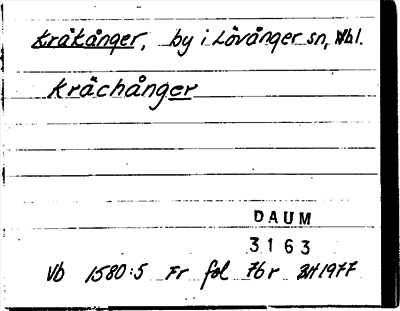 Kräkånger, by i Lövånger sn, Vbl.
Krächånger
DAUM
3163
Vb 1580:5 Fr fol 76r BH1977